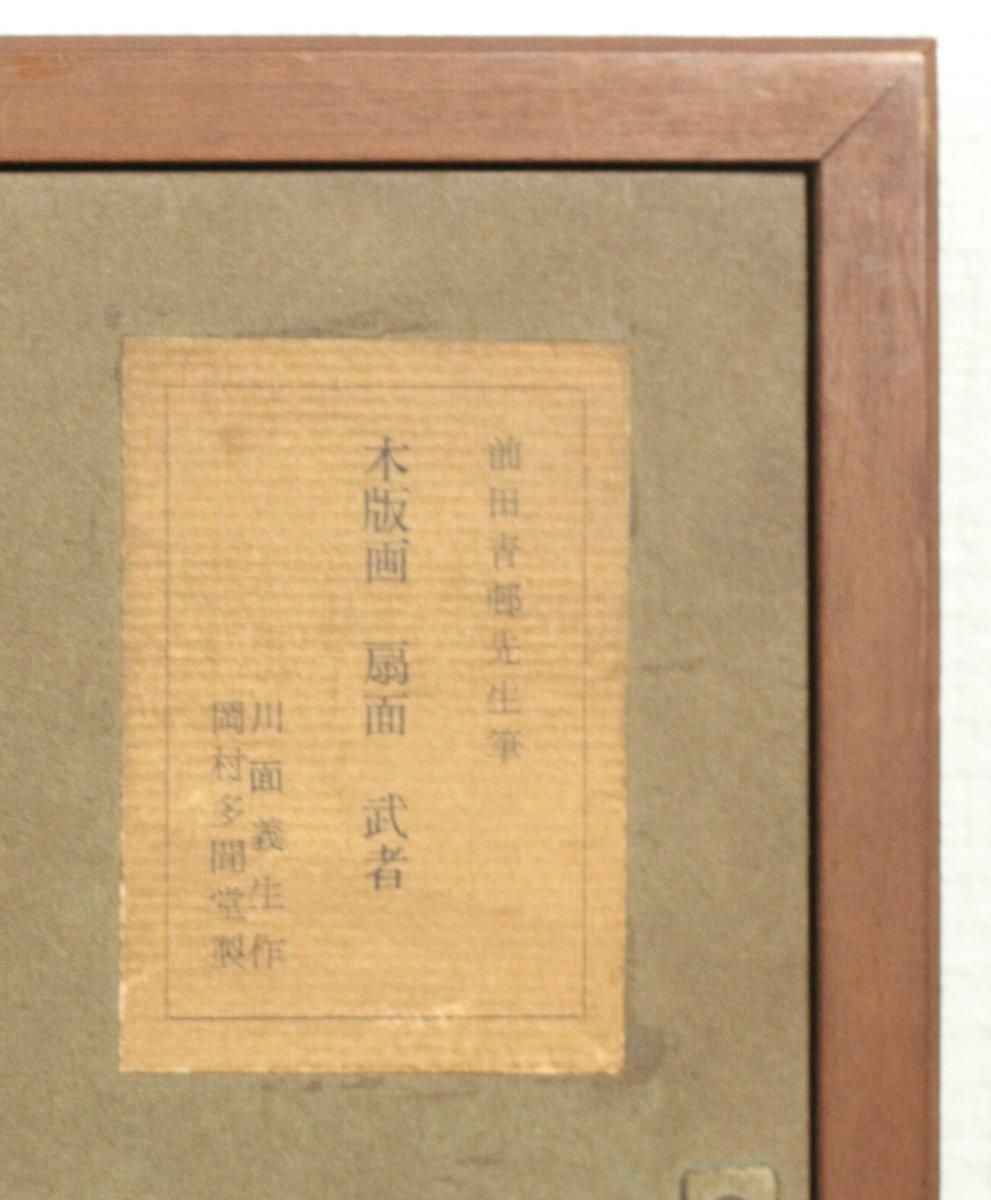 前田青邨先生筆
木版画　扇面　武者
川面義生作
岡村多聞堂製